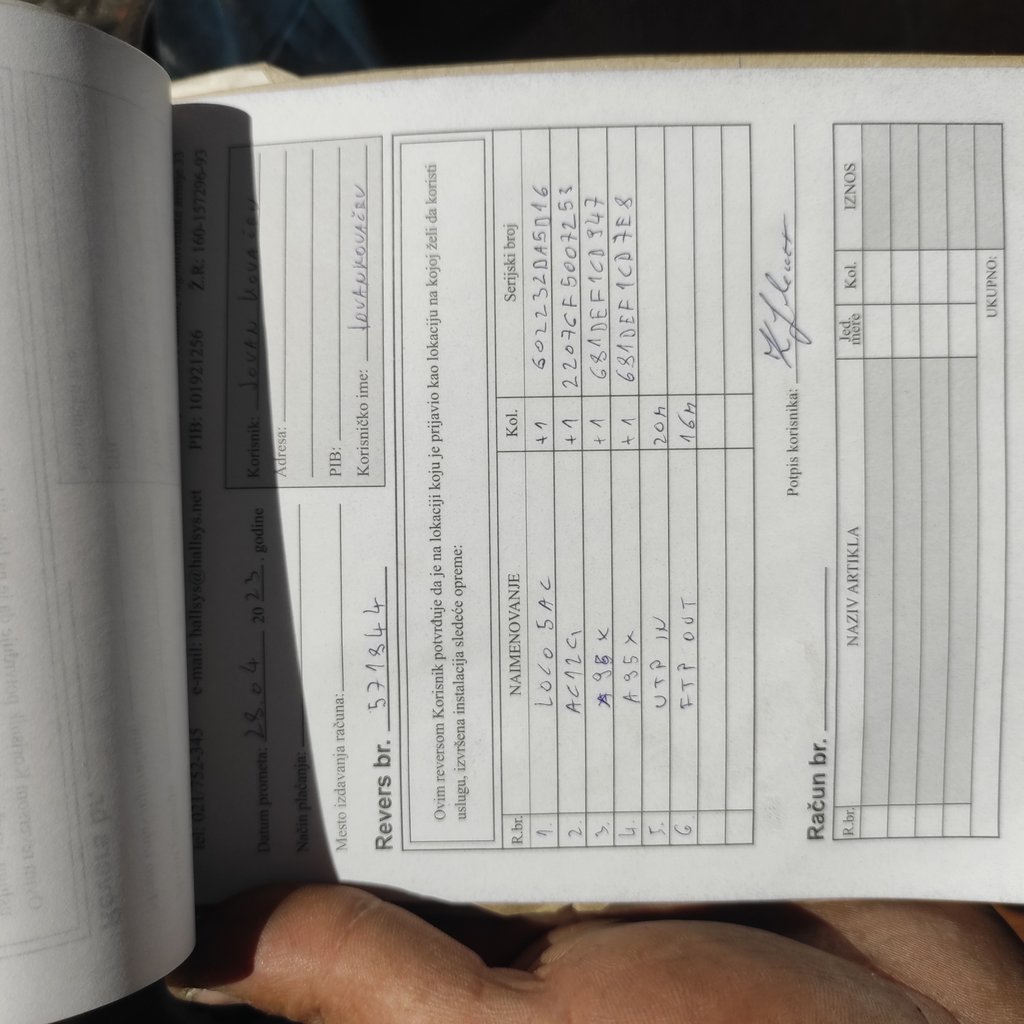 tel: 021/752-345 e-mail: hallsys@hallsys.net PIB: 101921256 Ž.R.: 160-157296-93
Datum prometa: 28.04 2023. godine
Način plaćanja:
Mesto izdavanja računa:
Korisnik: JOVAN
Adresa:
PIB:
Korisničko ime:
Revers br. 571344
Ovim reversom Korisnik potvrđuje da je na lokaciji koju je prijavio kao lokaciju na kojoj želi da koristi
uslugu, izvršena instalacija sledeće opreme:
R.br. NAIMENOVANJE Kol. Serijski broj
1. LOCO 5AC +1 602232DA5D16
2. AC12G +1 22076F5007253
3. 95X +1 681DEF1CD947
4. A95X +1 681DEF1CD7E8
5. UTP IN 20m
6. FTP OUT 16m
Potpis korisnika:
Račun br.
R.br. NAZIV ARTIKLA Jed. mere Kol. IZNOS
UKUPNO: